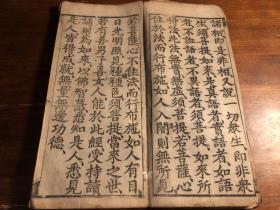 諸相即是非相又說一切衆生即非衆
生須菩提如來是真語者實語者如語
者不誑語者不異語者須菩提如來所
得法此法無實無虛須菩提若菩薩心
住於法而行布施如人入闇則無所見
若菩薩心不住法而行布施如人有目
日光明照見種種色須菩提當來之世
若有善男子善女人能於此經受持讀
誦則為如來以佛智慧悉知是人悉見
是人皆得成就無量無邊功德